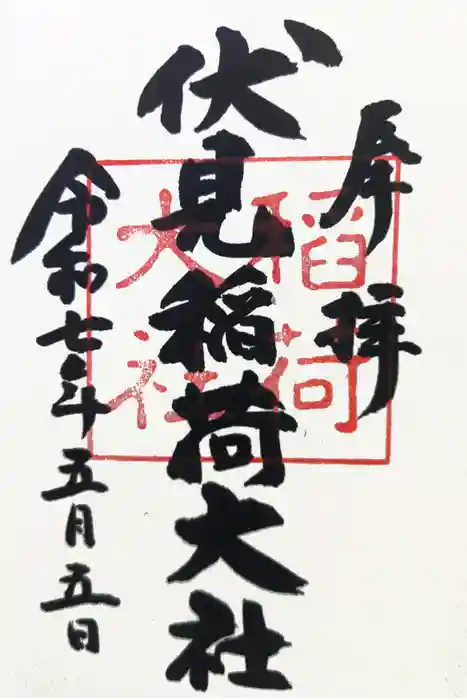 奉拝
伏見稲荷大社
令和七年五月五日
稲荷
大社